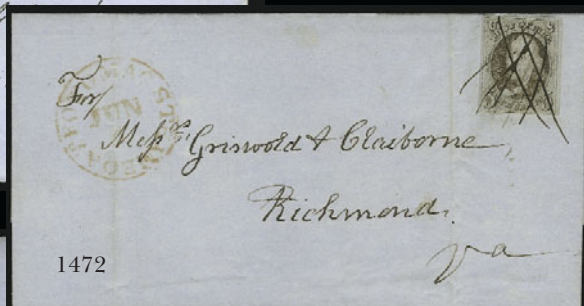 For
Messrs. Griswold & Claiborne,
Richmond.
Va
1472